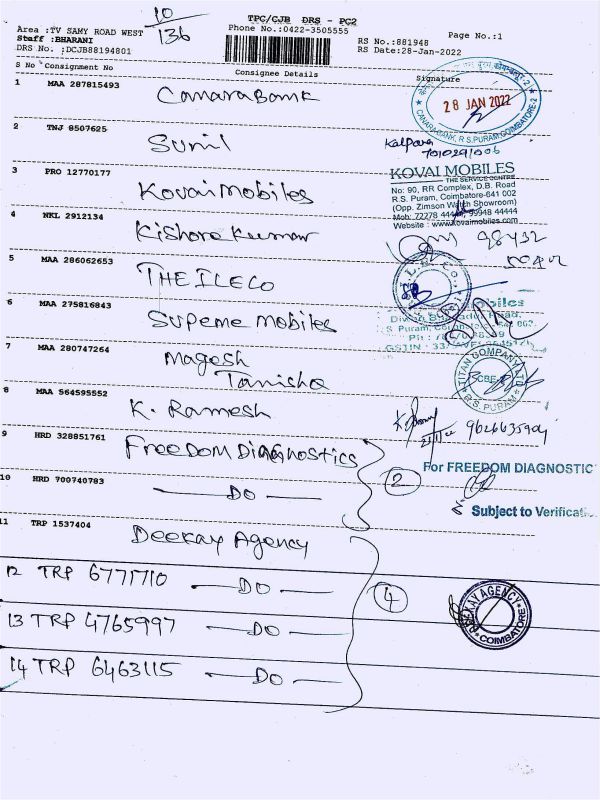 10
136
TPC/CJB DRS - PC2
Area :TV SAMY ROAD WEST
Phone No.:0422-3505555
Page No.:1
Staff :BHARANI
RS No.:881948
DRS No. :DCJB88194801
RS Date:28-Jan-2022
S No Consignment No
Consignee Details
Signature
1 MAA 287815493 Canara Bank
28 JAN 2022
CANARA BANK, R.S.PURAM, COIMBATORE-2
2 TNJ 8507625 Sunil
Kalpana
7010291006
3 PRO 12770177 Kovai Mobiles
KOVAI MOBILES
THE SERVICE CENTRE
No: 90, RR Complex, D.B. Road
R.S. Puram, Coimbatore-641 002
(Opp. Zimson Watch Showroom)
Mob: 72778 44444, 99948 44444
Website : www.kovaimobiles.com
4 NKL 2912134 Kishore Kumar
98432
5 MAA 286062653 THE ILECO
6 MAA 275816843 Supeme Mobiles
7 MAA 280747264 Magesh
Tanisha
TITAN COMPANY LTD
CBE
R.S. PURAM
8 MAA 564595552 K. Ramesh
9626635904
9 HRD 328851761 Freedom Diagnostics
2
For FREEDOM DIAGNOSTIC
10 HRD 700740783 — DO —
Subject to Verificati
11 TRP 1537404 Deekay Agency
12 TRP 6771710 — DO —
4
DEEKAY AGENCY
COIMBATORE
13 TRP 4765997 — DO —
14 TRP 6463115 — DO —